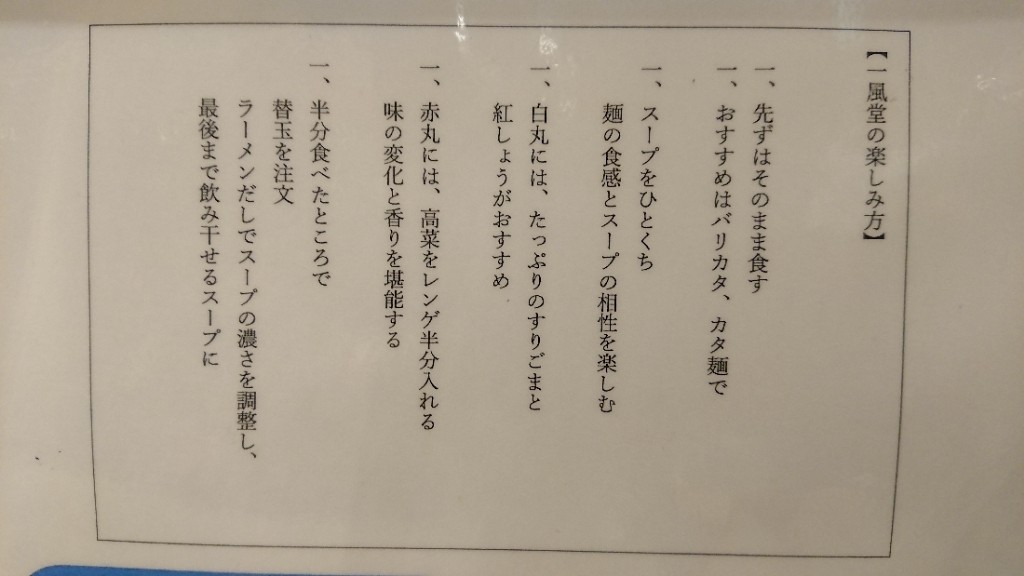 【一風堂の楽しみ方】
一、先ずはそのまま食す
一、おすすめはバリカタ、カタ麺で
一、スープをひとくち
麺の食感とスープの相性を楽しむ
一、白丸には、たっぷりのすりごまと
紅しょうがおすすめ
一、赤丸には、高菜をレンゲ半分入れる
味の変化と香りを堪能する
一、半分食べたところで
替玉を注文
ラーメンだしでスープの濃さを調整し、
最後まで飲み干せるスープに